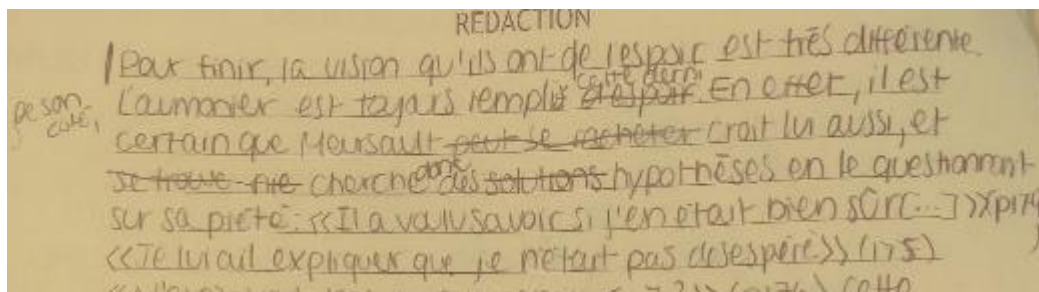 REDACTION
Pour finir, la vision qu'ils ont de l'espoir est très différente.
De son coté, L'aumonier est toujours remplis d'espoir. En effet, il est
certain que Meursault peut se racheter croit lui aussi, et
se trouve nie cherche donc des solutions hypothèses en le questionnant
sur sa piété: <<Il a voulu savoir si j'en étais bien sûr[...]>>(p174
<<Je lui ai expliquer que je n'étais pas désespéré>> (175)